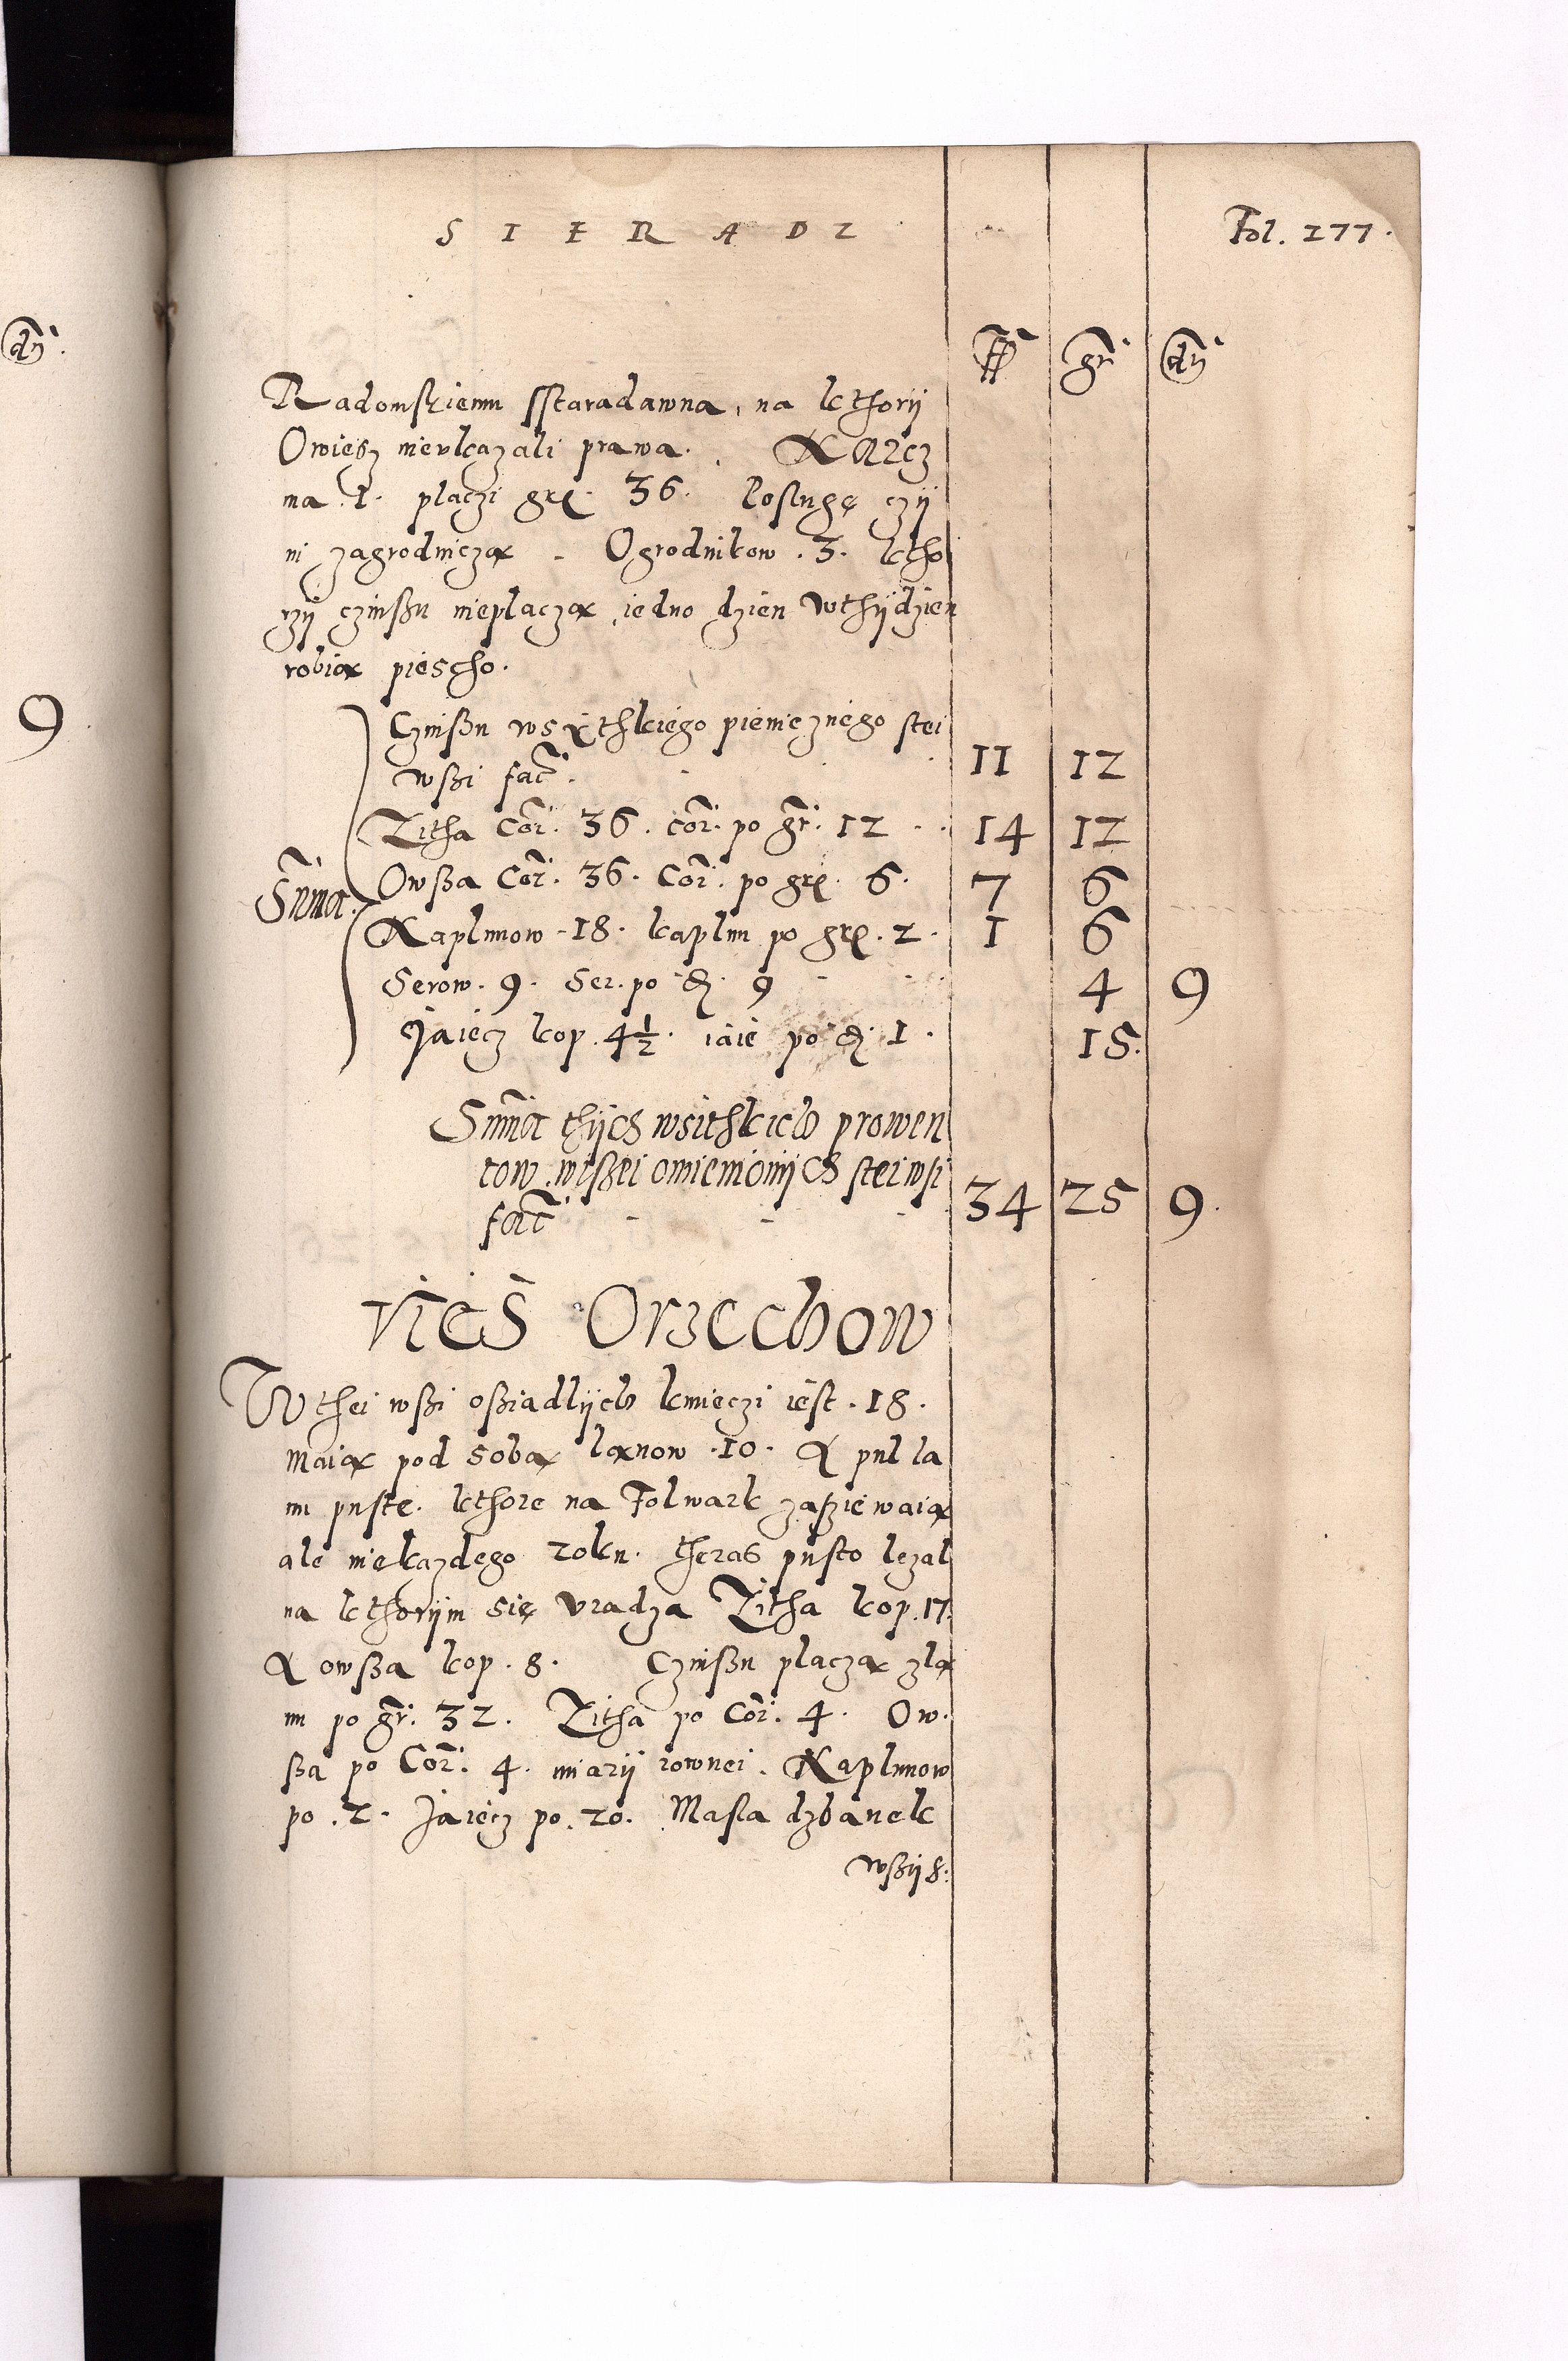 SIERADZ
Fol. 277.
fl gr dn
Radomskiemu sstaradawna, na kthorÿ
Owiesz nieukazali prawa. Karcz
ma 1. placzi grę. 36. Posługę czÿ
ni zagrodniczą - Ogrodnikow . 3. ktho
rzÿ czinßu nieplaczą, iedno dzien wthÿdzien
robią piescho.
Czinßu wsxithkiego pienieznego stei
wßi fact. 11 12
Zitha Cor. 36. cor. po gr. 12 . . 14 12
Summa. Owßa Cor. 36. Cor. po grę. 6. 7 6
Kaplunow . 18. kaplun po grę. 2. 1 6
Serow. 9. Ser. po d. 9 4 9
Jaiecz kop. 4½. iaie po d. 1. 15.
Summa thÿch wsithkich prowen
tow wißei omienionÿch stei wsi
fact 34 25 9.
Vies Orzechow
W thei wßi oßiadlÿch kmieczi iest . 18.
Maią pod sobą lanow . 10. A pul la
nu puste. kthore na Folwark zasziewaią
ale niekazdego roku. theras pusto lezal
na kthorÿm się uradza Zitha kop. 17.
A owßa kop. 8. Czinßu placzą zla
nu po gr. 32. Zitha po Cor. 4. Ow.
ßa po Cor. 4. miarÿ rownei. Kaplunow
po . 2. Jaiecz po. 20. Masla dzbanek
wßÿs:
dn.
9.